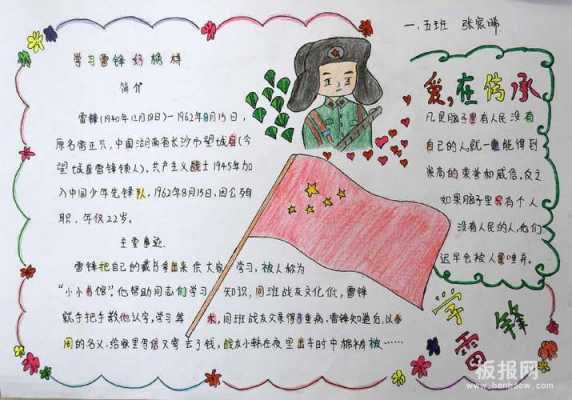 一.五班 张宸晞
学习雷锋好榜样
简介
雷锋(1940年12月18日)—1962年8月15日,
原名雷正兴,中国湖南省长沙市望城县(今
望城县雷锋镇人)。共产主义战士1945年加
入中国少年先锋队。1962年8月15日,因公殉
职,年仅22岁。
主要事迹.
雷锋把自己的藏书拿出来供大家学习,被人称为
“小小书馆”他帮助同志们学习知识,同班战友文化低,雷锋
就手把手教他认字,学习算术,同班战友父亲得重病,雷锋知道后,以
的名义,给家里写信又寄去了钱,战友小韩在夜里出车时中棉裤被……
爱,在传承
凡是脑子里有人民没有
自己的人,就一定能得到
崇高的荣誉和威信。反之
如果脑子里只有个人
没有人民的人,他们
迟早会被人民唾弃。
学
雷
锋
板报网
www.banbaow.com